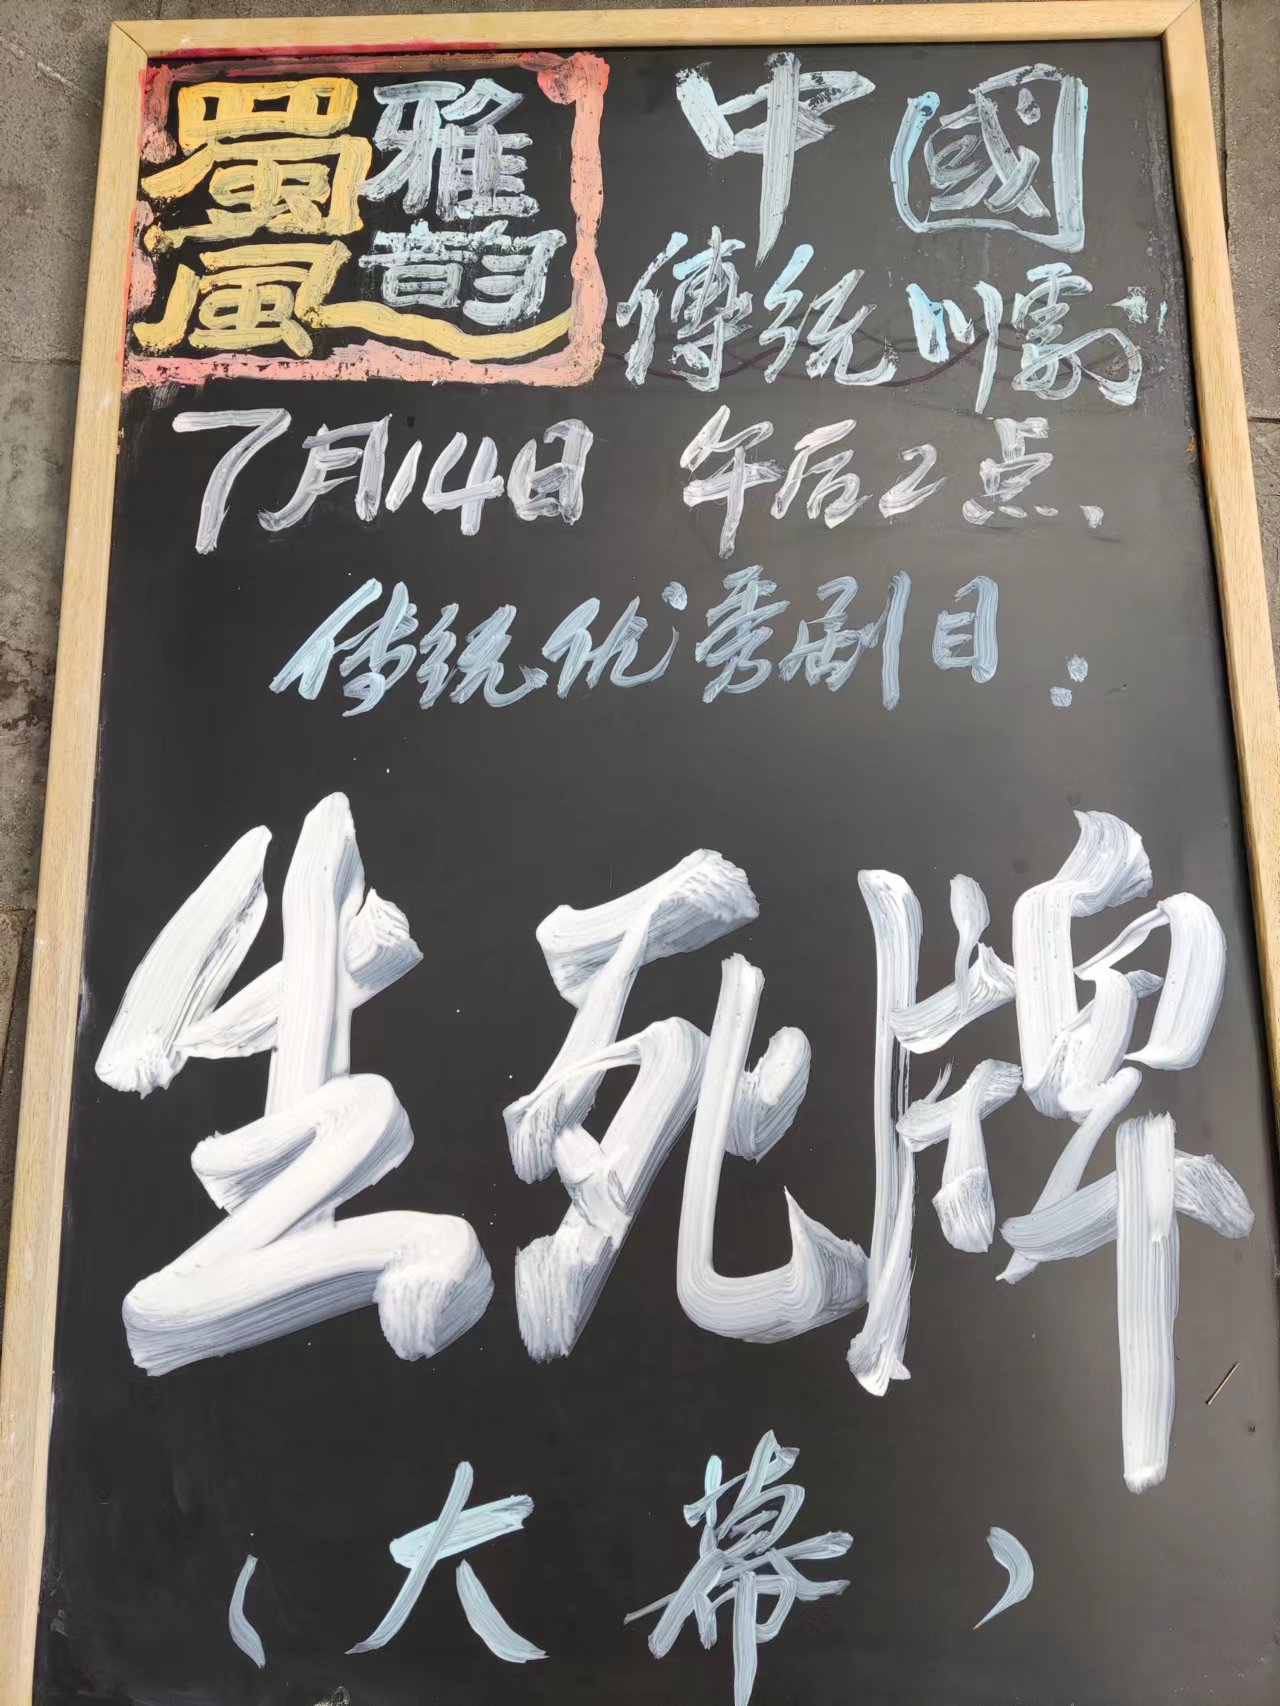 蜀風雅韵
中國
傳統川劇
7月14日 午后2点、
传统优秀剧目:
生死牌
(大幕)